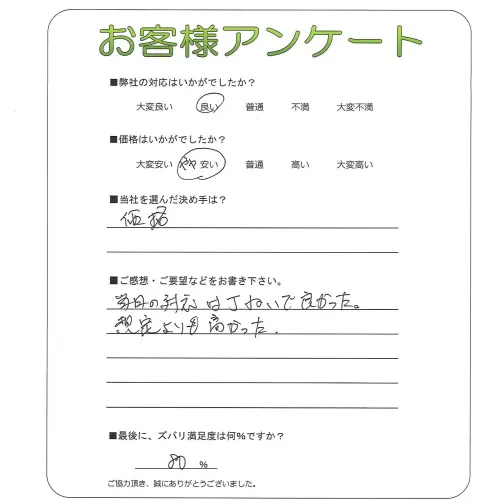 お客様アンケート
■弊社の対応はいかがでしたか？
大変良い 良い 普通 不満 大変不満
■価格はいかがでしたか？
大変安い やや安い 普通 高い 大変高い
■当社を選んだ決め手は？
価格
■ご感想・ご要望などをお書き下さい。
当日の対応はていねいで良かった。
想定よりも高かった。
■最後に、ズバリ満足度は何%ですか？
80 %
ご協力頂き、誠にありがとうございました。